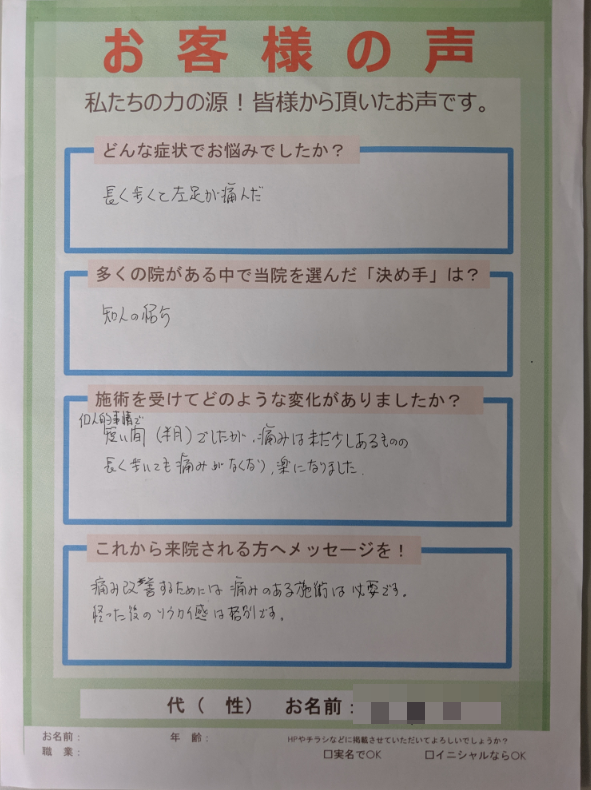 お客様の声
私たちの力の源！皆様から頂いたお声です。
どんな症状でお悩みでしたか？
長く歩くと左足が痛んだ
多くの院がある中で当院を選んだ「決め手」は？
知人の紹介
施術を受けてどのような変化がありましたか？
個人的事情で
短い間（半月）でしたが、痛みはまだ少しあるものの
長く歩いても痛みがなくなり、楽になりました。
これから来院される方へメッセージを！
痛み改善するためには痛みのある施術は必要です。
終った後のソウカイ感は格別です。
代（　性）　お名前：
お名前：　年 齢：　HPやチラシなどに掲載させていただいてよろしいでしょうか？
職 業：　□実名でOK　□イニシャルならOK